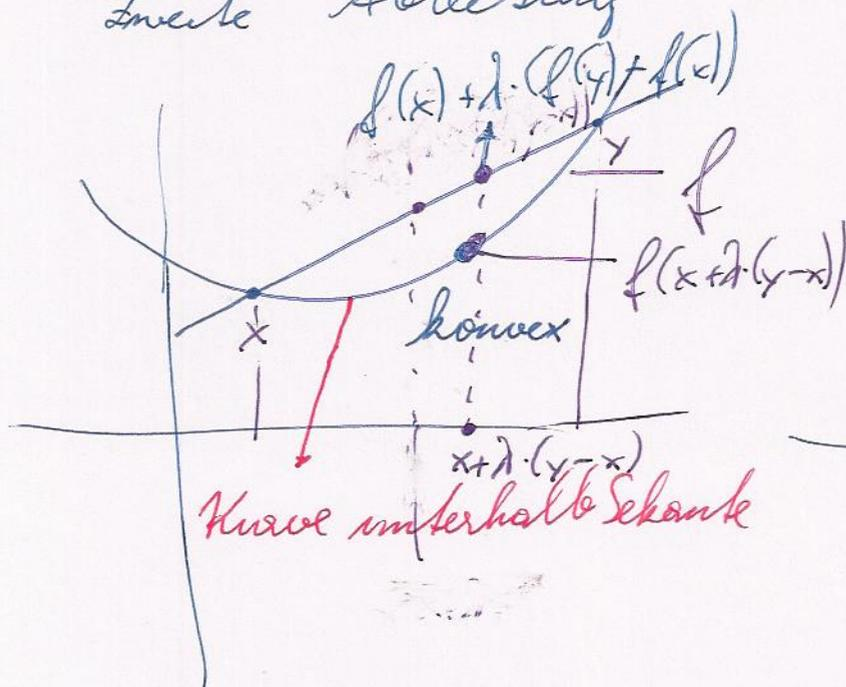 Zweite Ableitung
f(x) + λ·(f(y) - f(x))
y
f
f(x+λ·(y-x))
x
konvex
x+λ·(y-x)
Kurve unterhalb Sekante